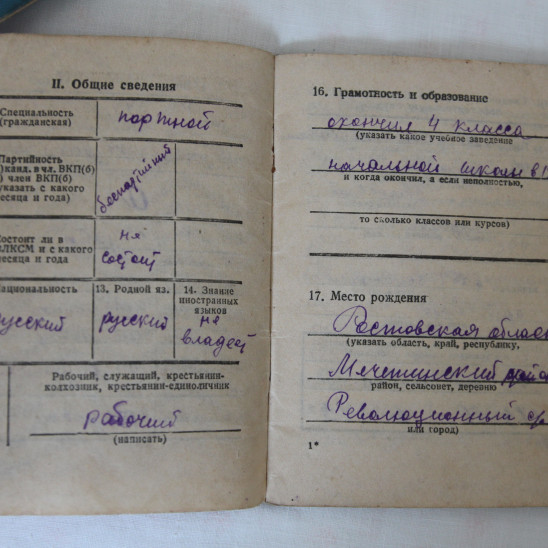 II. Общие сведения
Специальность
(гражданская)
портной
Партийность
канд. в чл. ВКП(б)
член ВКП(б)
указать с какого
месяца и года)
беспартийный
Состоит ли в
ВЛКСМ и с какого
месяца и года
не
состоит
Национальность
русский
13. Родной яз.
русский
14. Знание
иностранных
языков
не
владеет
Рабочий, служащий, крестьянин-
колхозник, крестьянин-единоличник
рабочий
(написать)
16. Грамотность и образование
окончил 4 класса
(указать какое учебное заведение
начальной школы в
и когда окончил, а если неполностью,
то сколько классов или курсов)
17. Место рождения
Ростовская
(указать область, край, республику,
Мечетинский
район, сельсовет, деревню
Революционный
или город)
1*